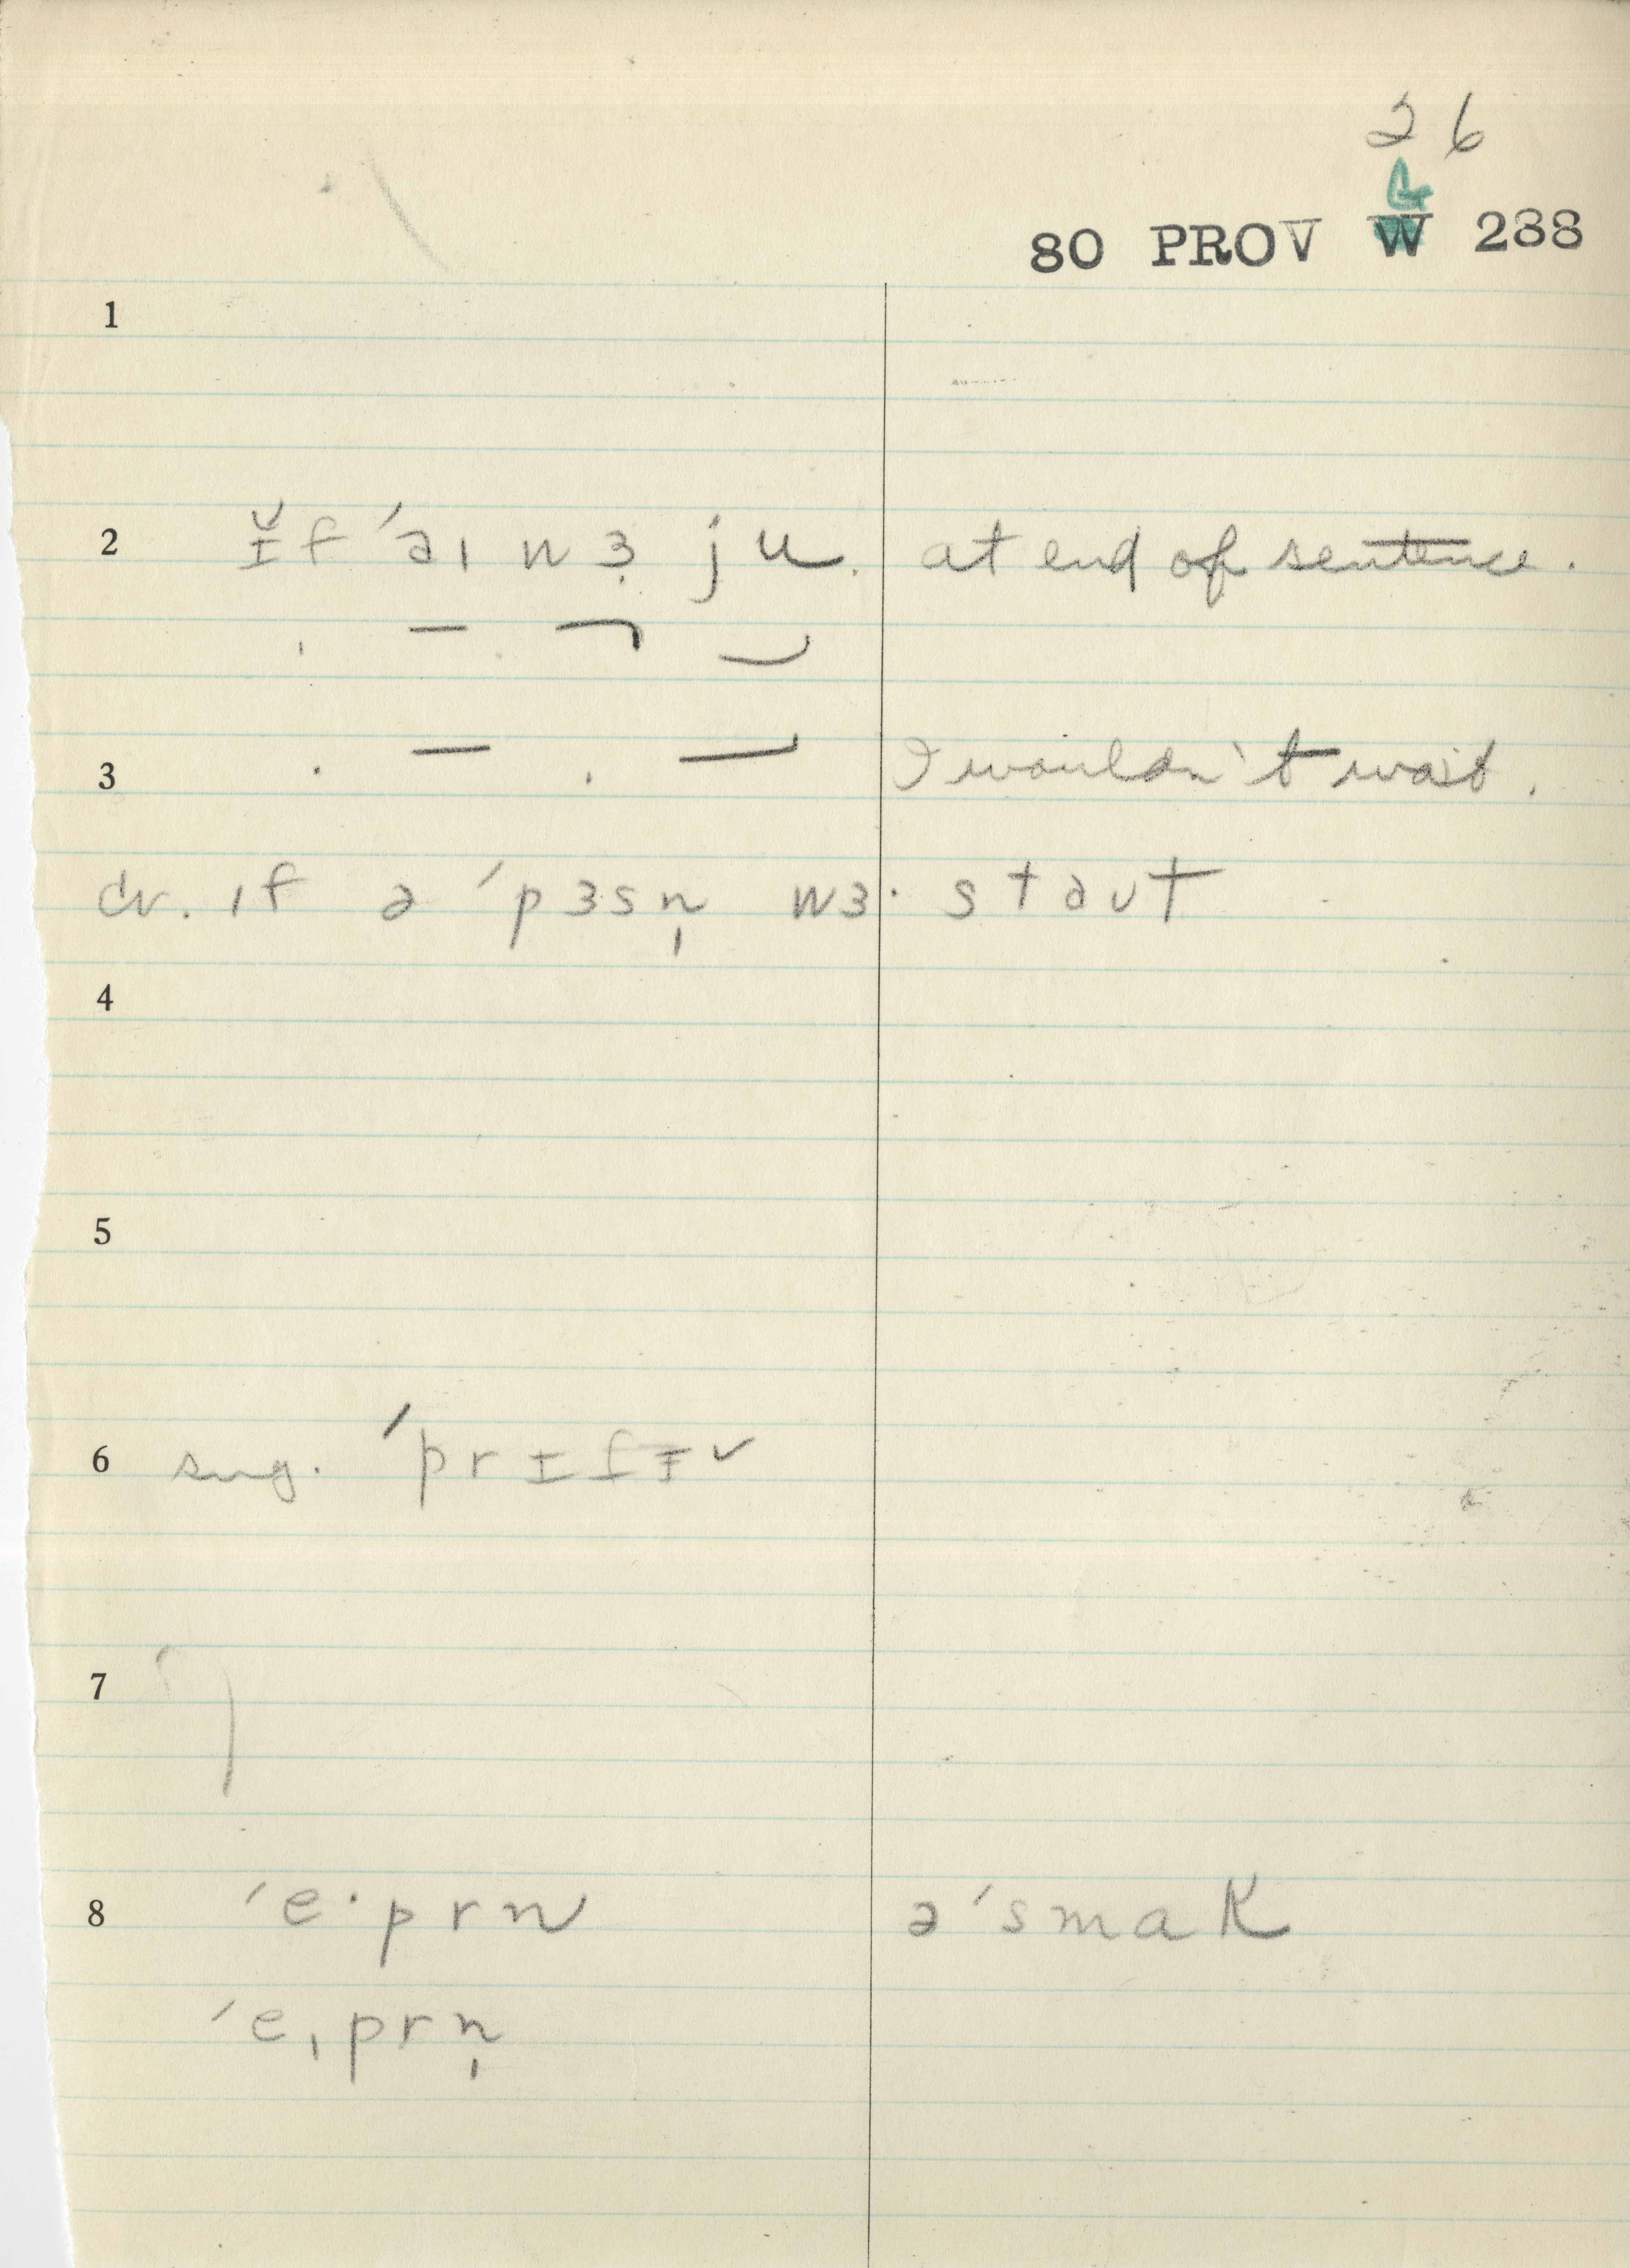 26
G
80 PROV W 288
1
2 ɪ̆f ˈaɪ wɜ̣ ju. at end of sentence.
3 I wouldn't wait.
cv. ɪf ə ˈpɜsn̩ wɜ· staʊt
4
5
6 sug. ˈprɪfɪ̵ ✓
7
8 ˈe·prn əˈsmak
ˈeˌprn̩